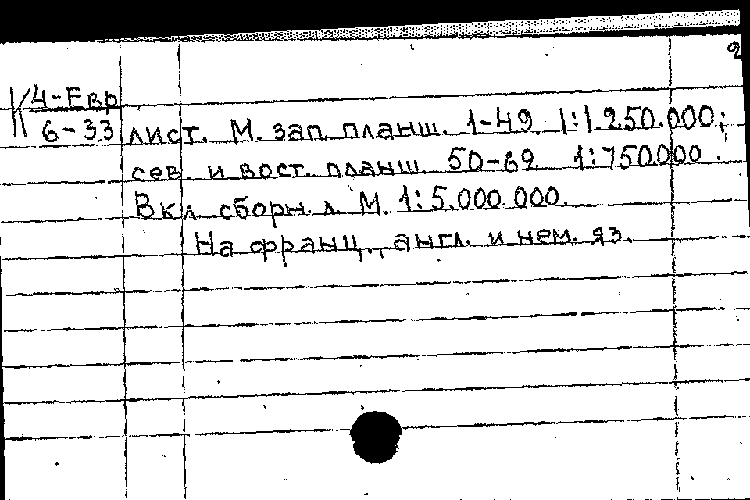 2
К 4-Евр
6-33
лист. М. зап. планш. 1-49 1:1.250.000;
сев. и вост. планш. 50-69 1:750.000.
Вкл. сборн. л. М. 1:5.000.000.
На франц., англ. и нем. яз.